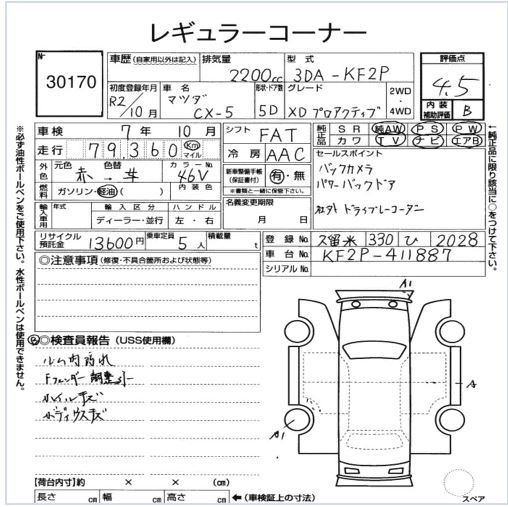 レギュラーコーナー
No.
30170
車歴 (自家用以外は記入) 排気量 2200cc 型式 3DA-KF2P
初度登録年月 R2/10月 車名 マツダ CX-5 形状・ドア数 5D グレード XD プロアクティブ 2WD・4WD
評価点 4.5
内装補助評価 B
車検 7年10月 シフト FAT
純正品 SR 純AW PS PW
カワ TV ナビ エアB
走行 79,360 Km マイル 冷房 AAC
外色 元色 赤 色替 カラーNo. 46V
燃料 ガソリン・軽油( ) 内装色
新車整備手帳(保証書付) 有・無
※書類と一緒に保管下さい。
セールスポイント
バックカメラ
パワーバックドア
社外ドライブレコーダー
輸入車用 年式 輸入区分 ディーラー・並行 ハンドル 左・右
名義変更期限 月 日
リサイクル預託金 13600円 乗車定員 5人 積載量 t
登録No. 久留米 330 ひ 2028
車台No. KF2P-411887
シリアルNo.
◎注意事項(修復・不具合箇所および状態等)
◎検査員報告(USS使用欄)
ルーム内汚れ
Fフェンダー調整
ホイルキズ
ボディウスキズ
A1
A
A1
(荷台内寸)約 × × (cm)
長さ cm 幅 cm 高さ cm ←(車検証上の寸法)
スペア
※必ず油性ボールペンをご使用下さい。水性ボールペンは使用できません。
←純正品に限り該当に○をつけて下さい。